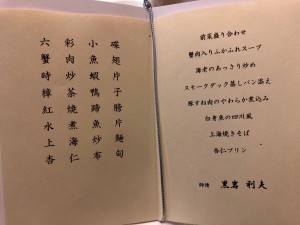 六彩小碟
蟹肉魚翅
時炒蝦片
樟茶鴨子
紅燒蹄膀
水煮魚片
上海炒麺
杏仁布甸
前菜盛り合わせ
蟹肉入りふかふれスープ
海老のあっさり炒め
スモークダック蒸しパン添え
豚すね肉のやわらか煮込み
白身魚の四川風
上海焼きそば
杏仁プリン
師傅 黒岩 利夫